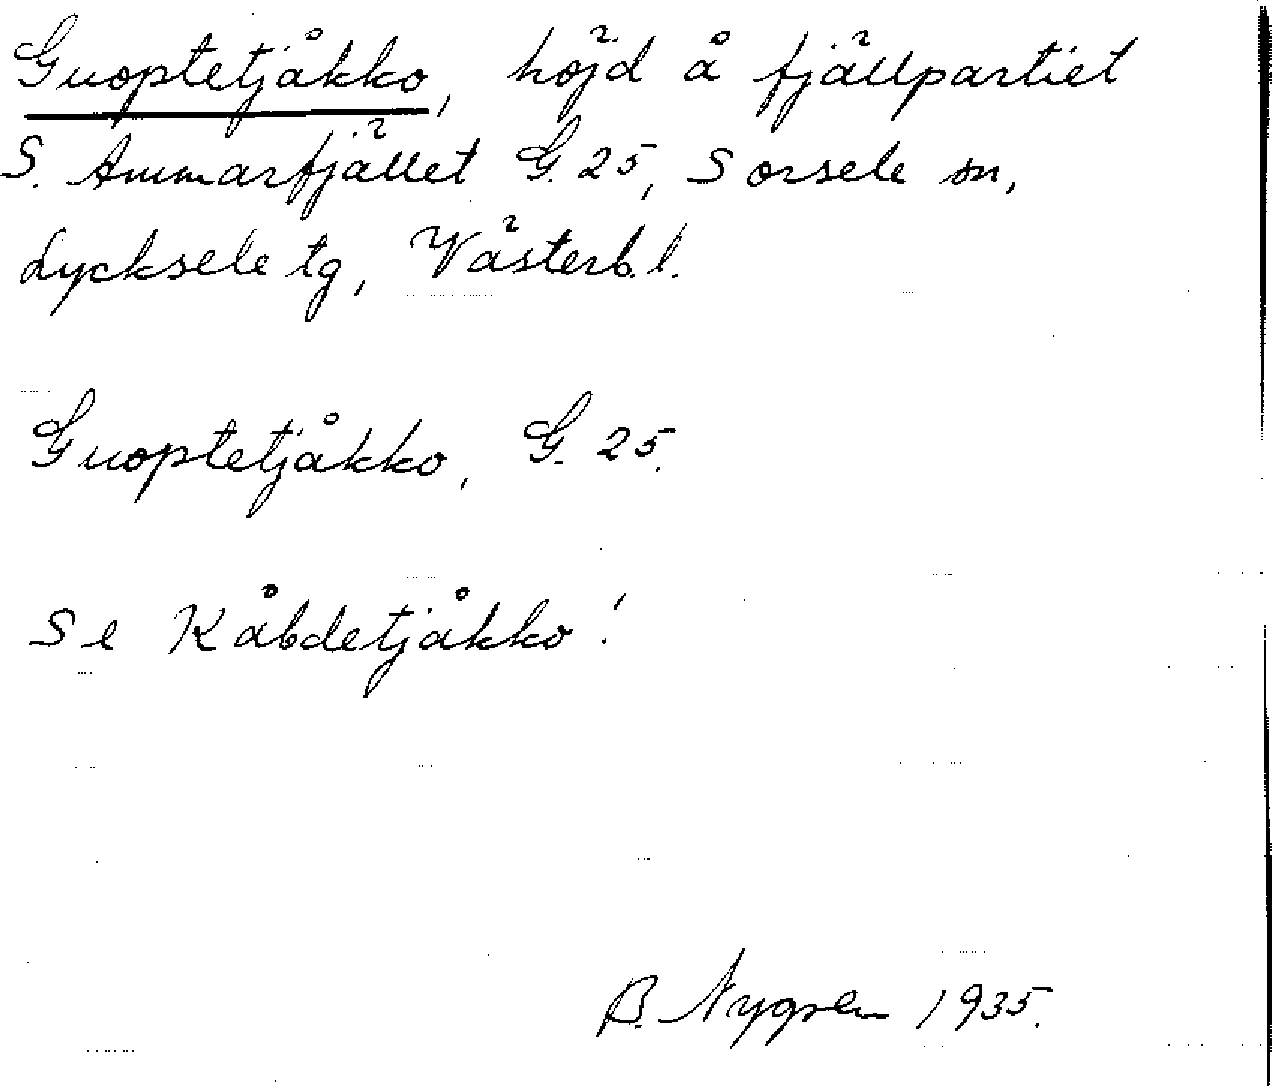 Guoptetjåkko, höjd å fjällpartiet
S. Ammarfjället G. 25, Sorsele sn,
Lycksele tg, Västerb. l.
Guoptetjåkko, G. 25.
Se Kåbdetjåkko!
B. Nygren 1935.